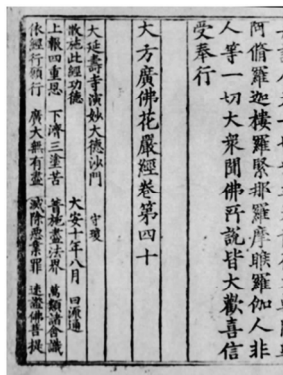 阿脩羅迦樓羅緊那羅摩睺羅伽人非
人等一切大衆聞佛所說皆大歡喜信
受奉行
大方廣佛花嚴經卷第四十
大延壽寺演妙大德沙門 守瓊
散施此經功德 大安十年八月 日流通
上報四重恩 下濟三塗苦 普施盡法界 萬類諸含識
依經行願行 廣大無有盡 滅除惡業罪 速證佛菩提